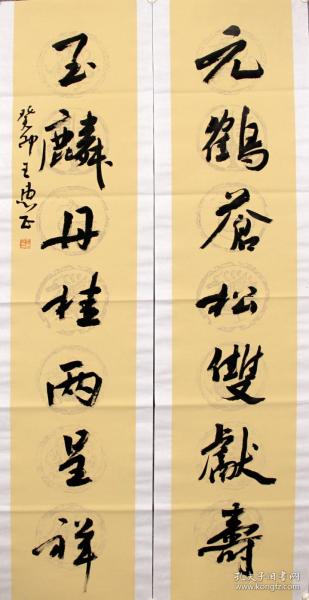 元鶴蒼松雙獻壽
玉麟丹桂兩呈祥
癸卯王忠正
孔夫子旧书网
www.kongfz.com